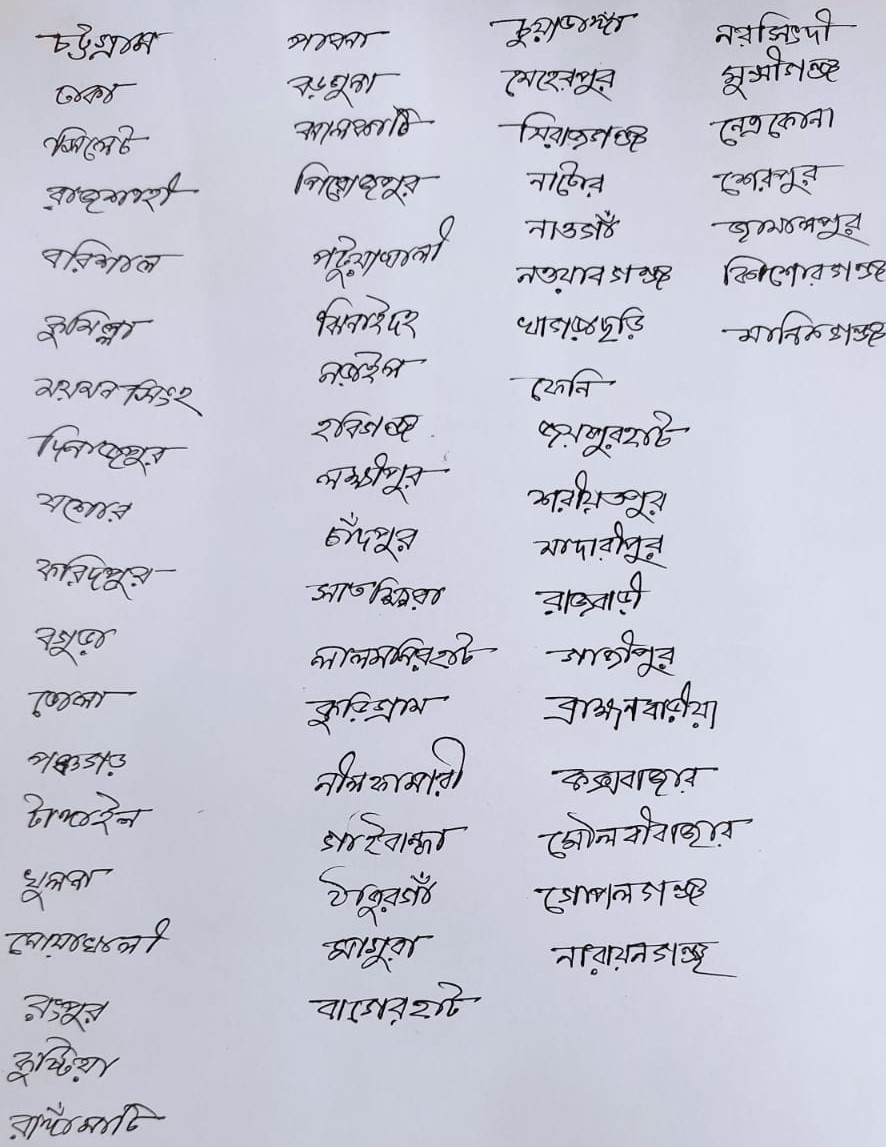 চট্টগ্রাম
ঢাকা
সিলেট
রাজশাহী
বরিশাল
কুমিল্লা
ময়মনসিংহ
দিনাজপুর
যশোর
ফরিদপুর
বগুড়া
ভোলা
পঞ্চগড়
টাঙ্গাইল
খুলনা
নোয়াখালী
রংপুর
কুষ্টিয়া
রাঙ্গামাটি
পাবনা
বড়গুনা
ঝালকাঠি
পিরোজপুর
পটুয়াখালী
ঝিনাইদহ
নড়াইল
হবিগঞ্জ
লক্ষ্মীপুর
চাঁদপুর
সাতক্ষিরা
লালমনিরহাট
কুড়িগ্রাম
নীলফামারী
গাইবান্ধা
ঠাকুরগাঁ
মাগুরা
বাগেরহাট
চুয়াডাঙ্গা
মেহেরপুর
সিরাজগঞ্জ
নাটোর
নাওগাঁ
নওয়াবগঞ্জ
খাগড়াছড়ি
ফেনি
জয়পুরহাট
শরীয়তপুর
মাদারীপুর
রাজবাড়ী
গাজীপুর
ব্রাহ্মনবাড়ীয়া
কক্সবাজার
মৌলবীবাজার
গোপালগঞ্জ
নারায়নগঞ্জ
নরসিংদী
মুন্সীগঞ্জ
নেত্রকোনা
শেরপুর
জামালপুর
কিশোরগঞ্জ
মানিকগঞ্জ